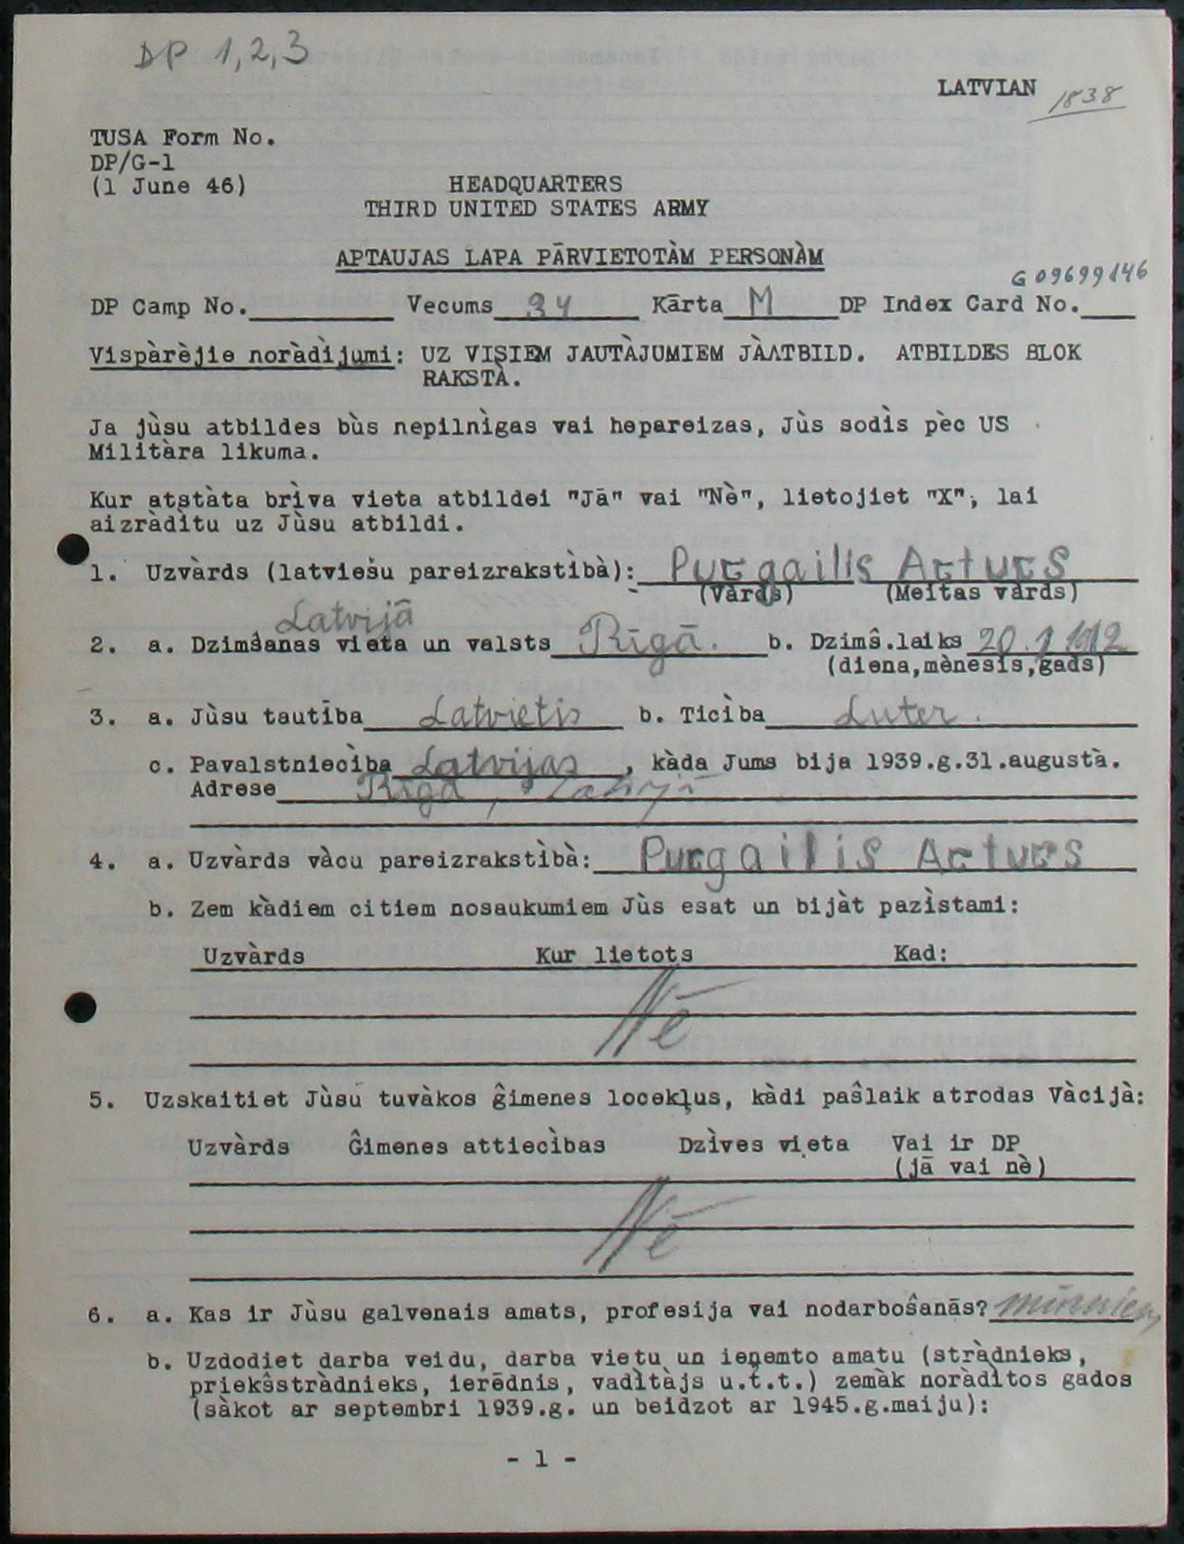 DP 1,2,3
LATVIAN 1838
TUSA Form No.
DP/G-1
(1 June 46)
HEADQUARTERS
THIRD UNITED STATES ARMY
APTAUJAS LAPA PĀRVIETOTÀM PERSONÀM
G 09699146
DP Camp No. Vecums 34 Kārta M DP Index Card No.
Vispàrèjie noràdìjumi: UZ VISIEM JAUTÀJUMIEM JÀATBILD. ATBILDES BLOK
RAKSTÀ.
Ja jùsu atbildes bùs nepilnìgas vai hepareizas, Jùs sodìs pèc US
Militàra likuma.
Kur atstàta brìva vieta atbildei "Jā" vai "Nè", lietojiet "X", lai
aizràdìtu uz Jùsu atbildi.
1. Uzvàrds (latviešu pareizrakstìbà): Purgailis Arturs
(Vàrds) (Meitas vàrds)
Latvijā
2. a. Dzimšanas vieta un valsts Rīgā. b. Dzimŝ.laiks 20.1 1912
(diena,mènesis,gads)
3. a. Jùsu tautība Latvietis b. Ticìba Luter.
c. Pavalstniecìba Latvijas, kàda Jums bija 1939.g.31.augustà.
Adrese Rīgā, Latvijā
4. a. Uzvàrds vàcu pareizrakstìbà: Purgailis Arturs
b. Zem kàdiem citiem nosaukumiem Jùs esat un bijàt pazìstami:
Uzvàrds Kur lietots Kad:
Nē
5. Uzskaitiet Jùsu tuvàkos ĝimenes locekļus, kàdi paŝlaik atrodas Vàcijà:
Uzvàrds Ĝimenes attiecìbas Dzìves vieta Vai ir DP
(jā vai nè)
Nē
6. a. Kas ir Jùsu galvenais amats, profesija vai nodarboŝanās?
b. Uzdodiet darba veidu, darba vietu un ieņemto amatu (stràdnieks,
priekŝstràdnieks, ierēdnis, vadìtàjs u.t.t.) zemàk noràdìtos gados
(sàkot ar septembri 1939.g. un beidzot ar 1945.g.maiju):
- 1 -